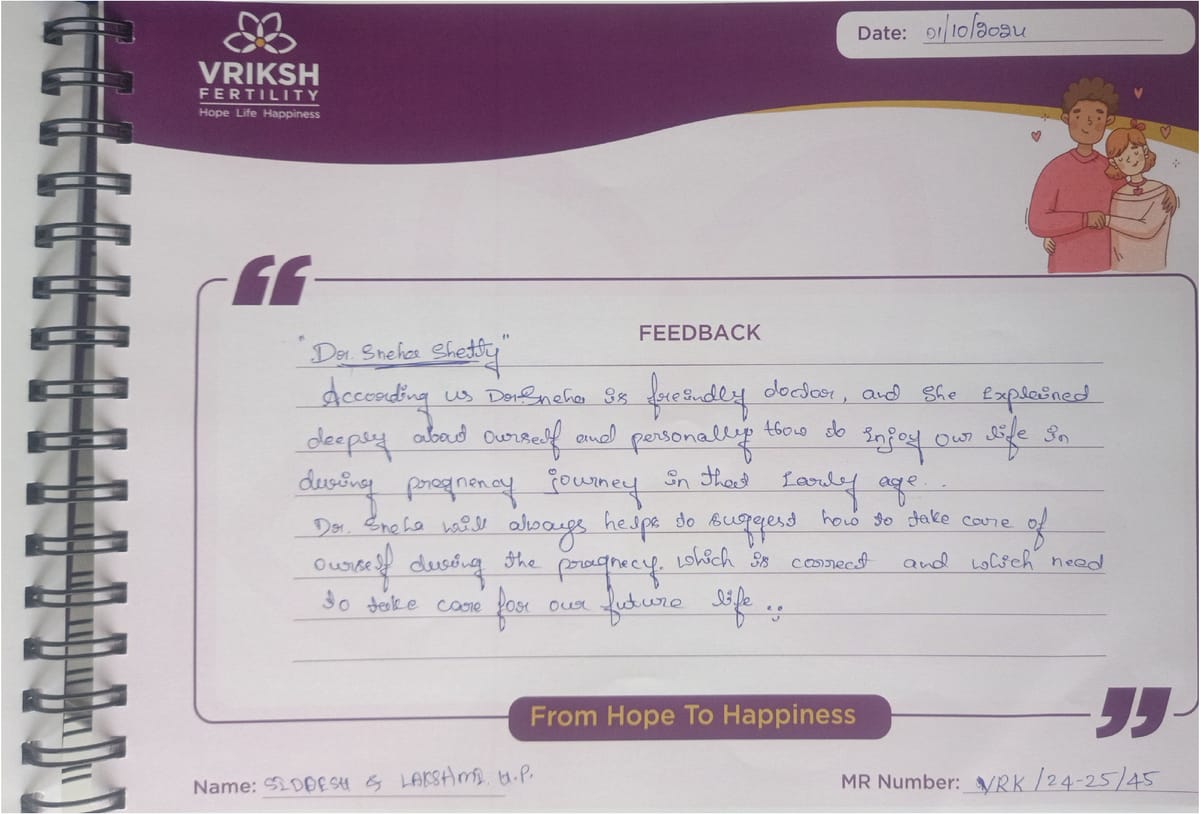 VRIKSH
FERTILITY
Hope Life Happiness
Date: 01/10/2024
FEEDBACK
"Dr. Sneha Shetty"
According us Dr. Sneha is freindly doctor, and she Explained
deeply abod ourself and personally thow to Enjoy our life in
during pregnency journey in that Early age..
Dr. Sneha will always helps to suggest how to take care of
ourself during the pragnecy. which is correct and which need
to take care for our future life..
From Hope To Happiness
Name: SIDDESH & LAKSHMI. H.P.
MR Number: VRK/24-25/45